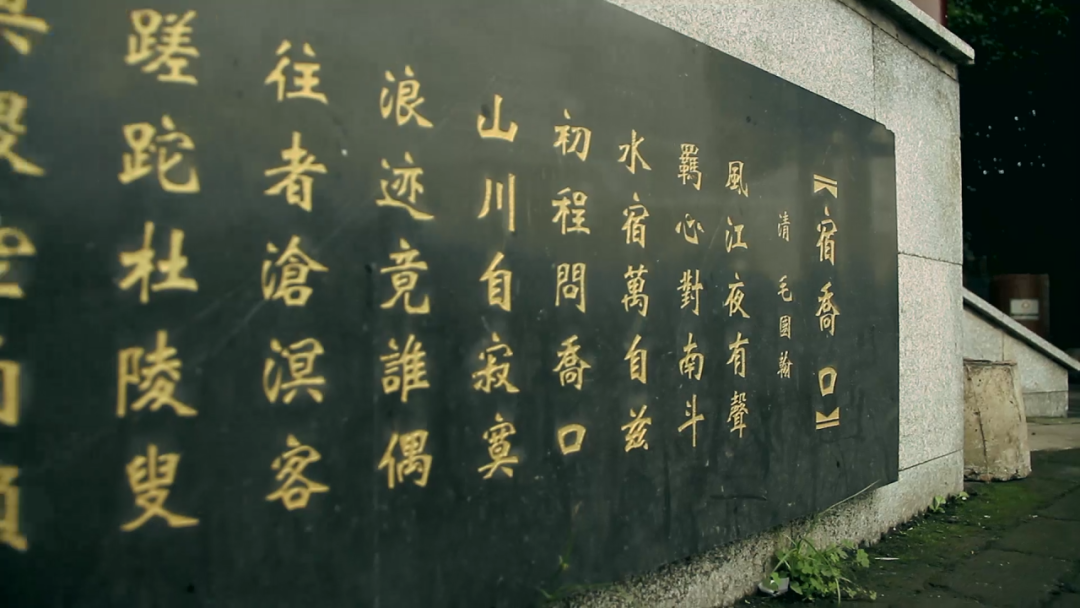 《宿喬口》
清 毛國翰
風江夜有聲
羈心對南斗
水宿萬自茲
初程問喬口
山川自寂寞
浪迹竟誰偶
往者滄溟客
蹉跎杜陵叟